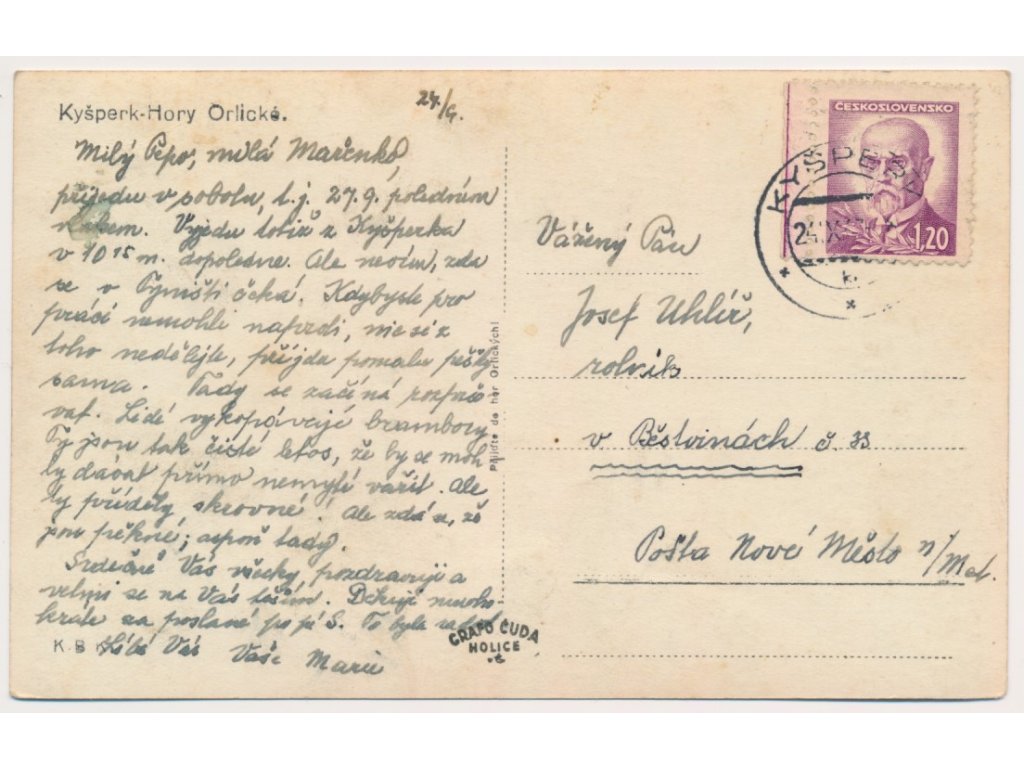 Kyšperk-Hory Orlické.
24/9.
Milý Pepo, milá Mařenko,
přijedu v sobotu, t.j. 27.9. poledním
vlakem. Vyjedu totiž z Kyšperka
v 10 15 m. dopoledne. Ale nevím, zda
se v Týništi čeká. Kdybyste pro
práci nemohli naproti, nic si z
toho nedělejte, přijdu pomalu pěšky
sama. Tady se začíná
Lidé vykopávají brambory.
Ty jsou tak čisté letos, že by se moh-
ly dávat přímo nemyté vařit. Ale
ty příděly skrovné! Ale zdá se, že
jsou pěkné, aspoň tady.
Srdečně Vás všecky pozdravuji a
velmi se na Vás těším. Děkuji mnoho-
kráte za poslané To bylo
Líbá Vás Vaše Marie
K.B.
Přijďte do hor Orlických!
GRAFO ČUDA
HOLICE
ČESKOSLOVENSKO
1,20
KYŠPERK
24.IX
Vážený Pán
Josef Uhlíř,
rolník
v Běstvinách č. 33
Pošta Nové Město n/Met.